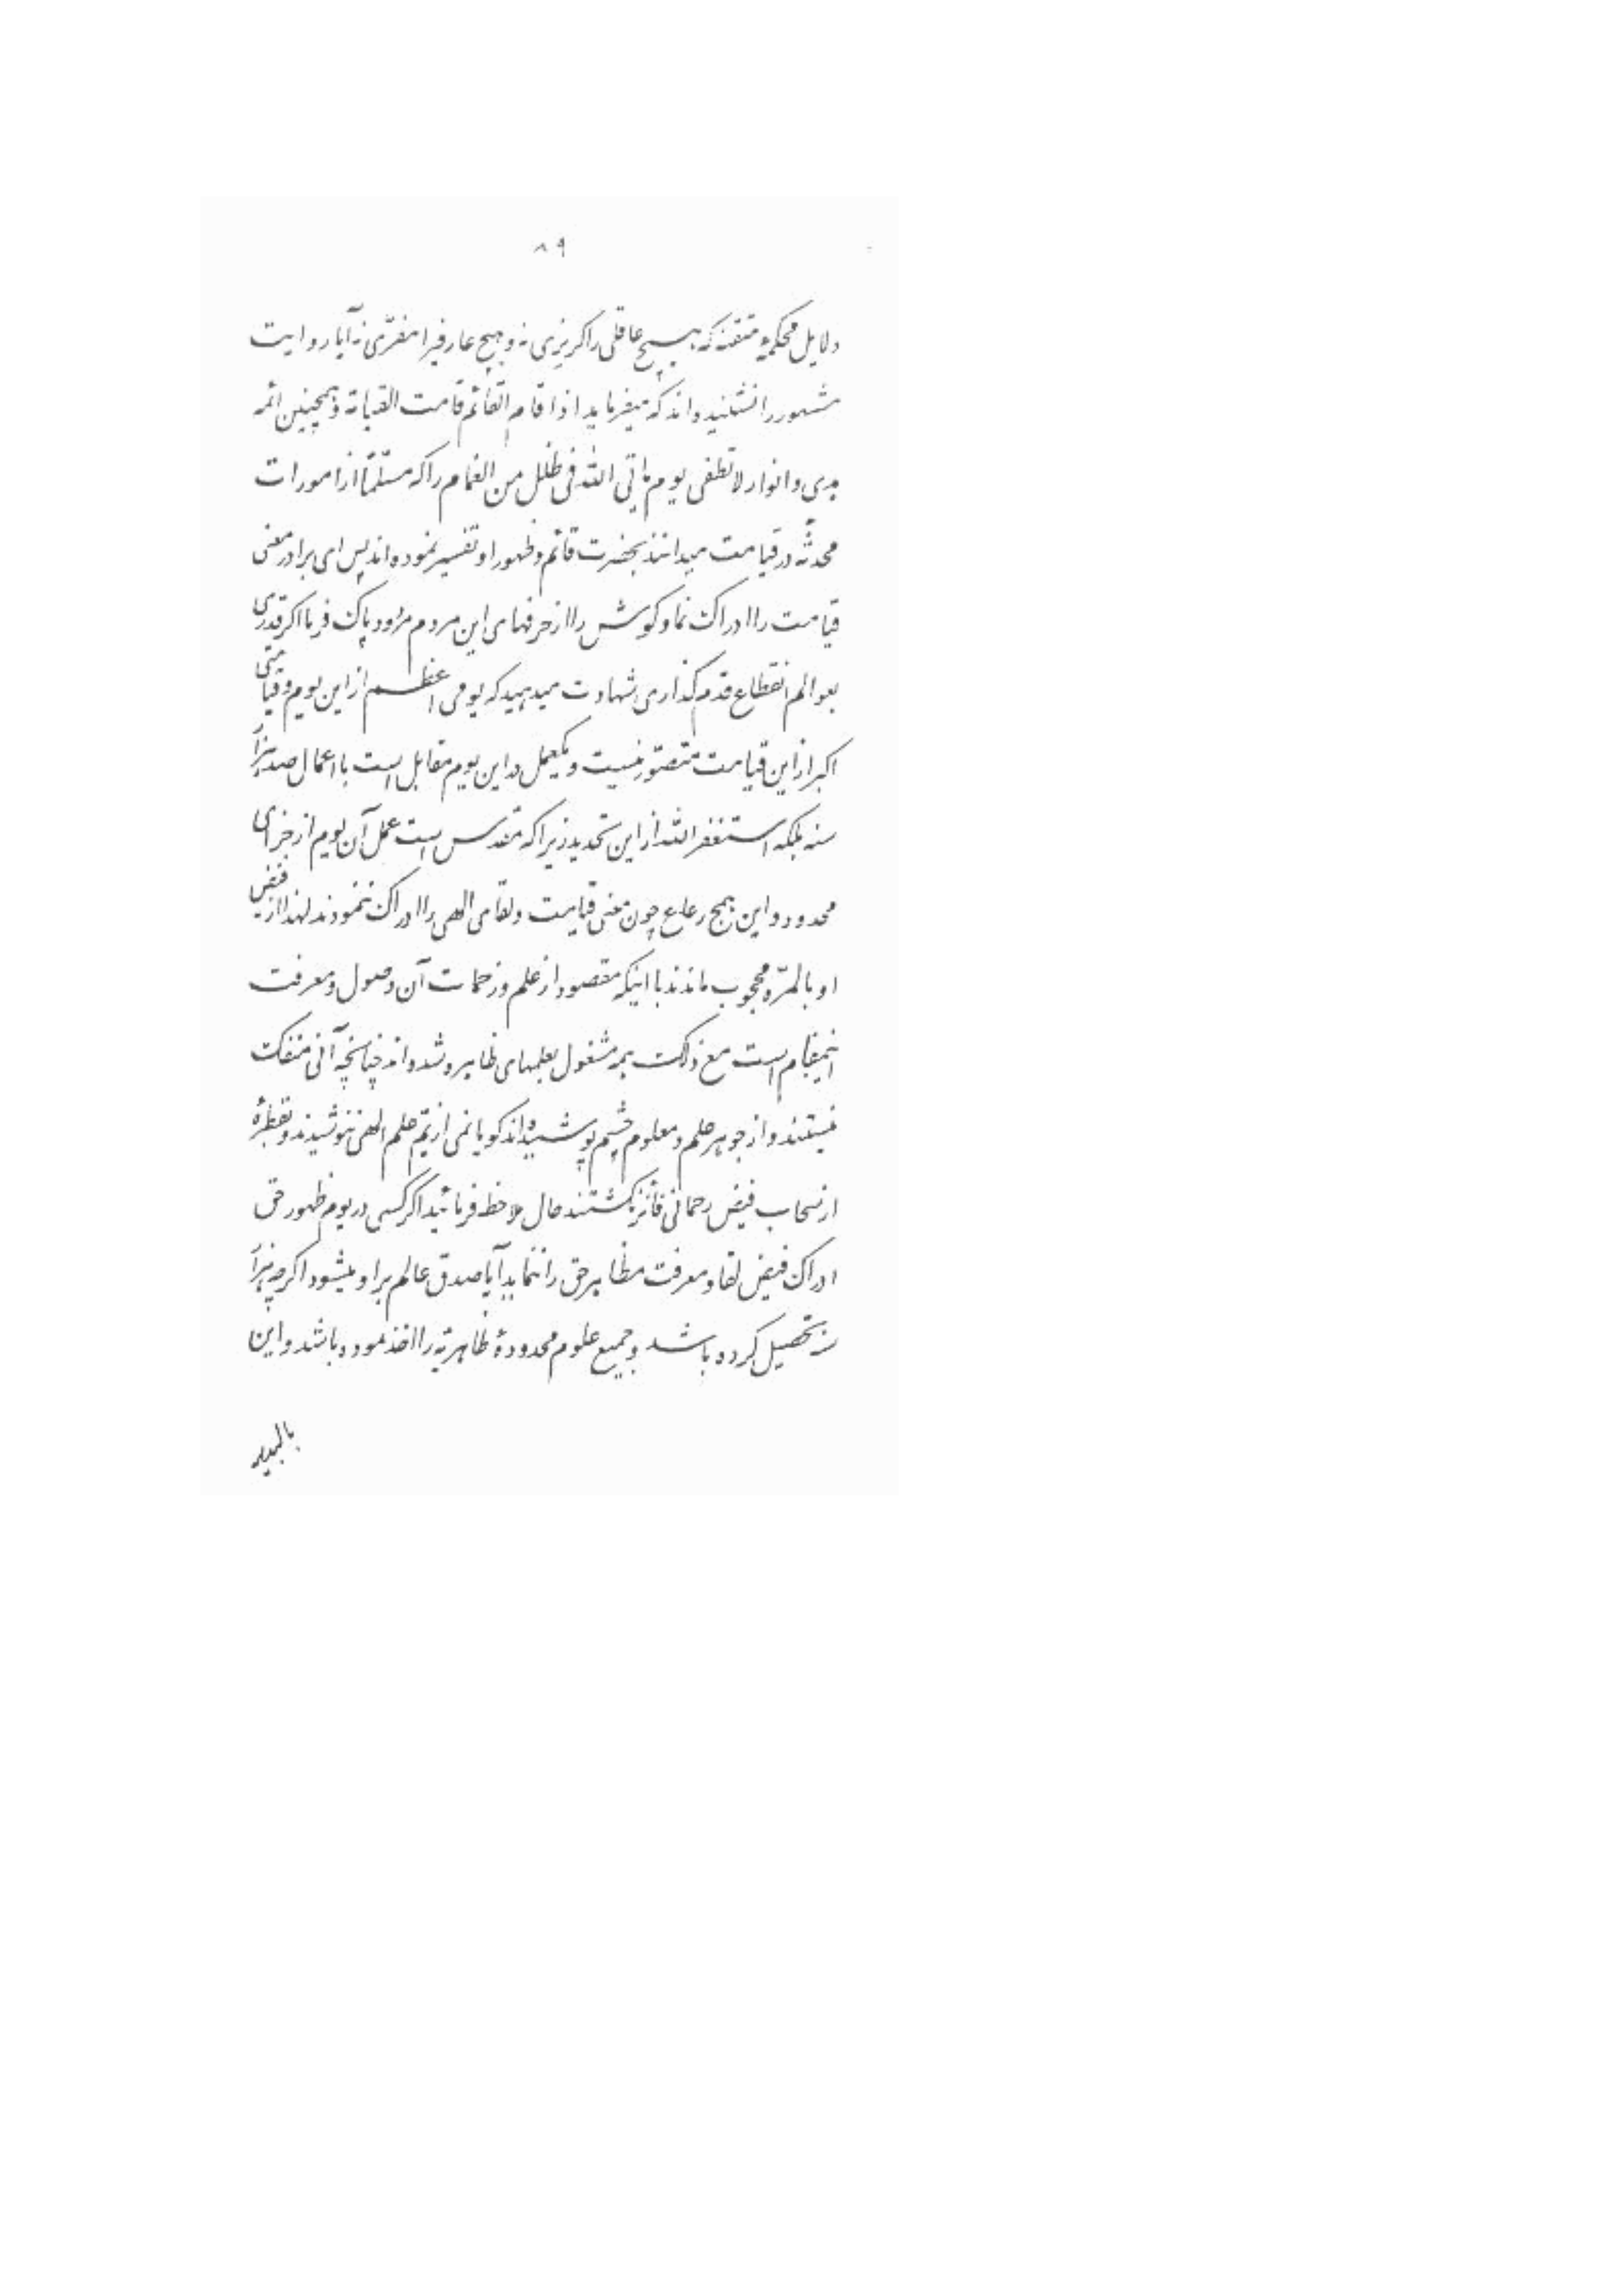 ۸۹
دلایل محکمهٔ متقنه که هیچ عاقلی را گریزی نه و هیچ عارفیرا مفرّی نه آیا روایت
مشهور را نشنیده‌اند که میفرماید اذا قام القائم قامت القیامة و همچنین ائمه
هدی و انوار لا تطفی یوم یاتی اللّه فی ظلل من الغمام را که مسلّماً از امورات
محدثه در قیامت میدانند بحضرت قائم و ظهور او تفسیر نموده‌اند پس ای برادر معنی
قیامت را ادراک نما و گوش را از حرفهای این مردم مردود پاک فرما اگر قدری
بعوالم انقطاع قدم گذاری شهادت میدهید که یومی اعظم از این یوم و قیامتی
اکبر از این قیامت متصوّر نیست و یکعمل در این یوم مقابل است با اعمال صد هزار
سنه بلکه استغفر اللّه از این تحدید زیرا که مقدس است عمل آن یوم از جزای
محدود و این همج رعاع چون معنی قیامت و لقای الهی را ادراک ننمودند لهذا از فیض
او بالمرّه محجوب ماندند با اینکه مقصود از علم و زحمات آن وصول و معرفت
اینمقام است مع ذلک همه مشغول بعلمهای ظاهره شده‌اند چنانچه آنی منفک
نیستند و از جوهر علم و معلوم چشم پوشیده‌اند گویا نمی از یمّ علم الهی ننوشیدند و بقطرهٔ
از سحاب فیض رحمانی فائز نگشتند حال ملاحظه فرمائید اگر کسی در یوم ظهور حق
ادراک فیض لقا و معرفت مظاهر حق را ننماید آیا صدق عالم بر او میشود اگرچه هزار
سنه تحصیل کرده باشد و جمیع علوم محدودهٔ ظاهریّه را اخذ نموده باشد و این
بالبدیهه